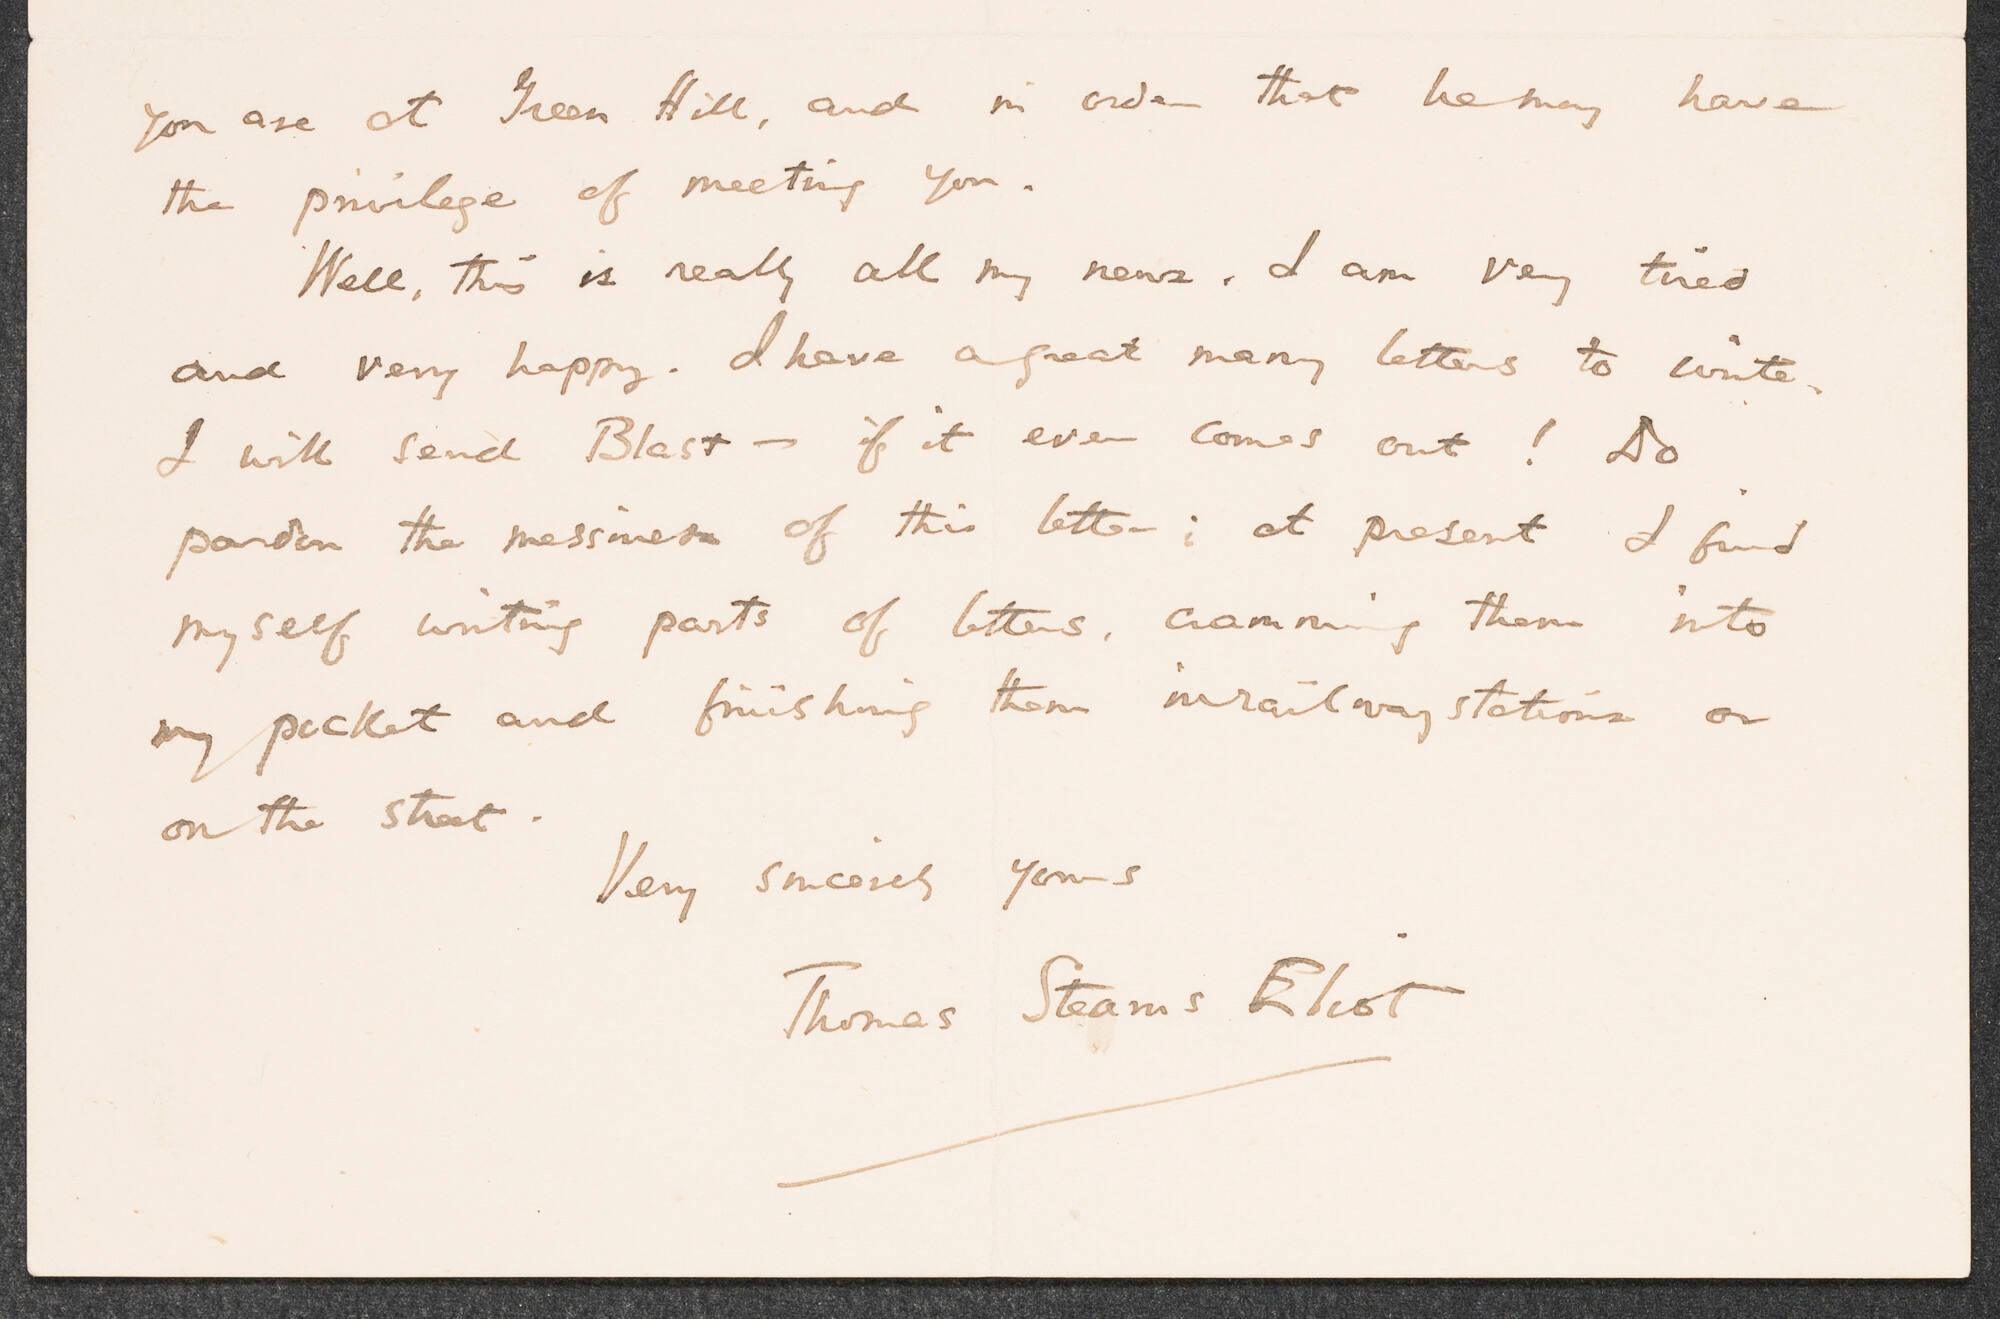 you are at Green Hill, and in order that he may have
the privilege of meeting you.
Well, this is really all my news. I am very tired
and very happy. I have a great many letters to write.
I will send Blast — if it ever comes out! Do
pardon the messiness of this letter; at present I find
myself writing parts of letters, cramming them into
my pocket and finishing them in railway stations or
on the street.
Very sincerely yours
Thomas Stearns Eliot